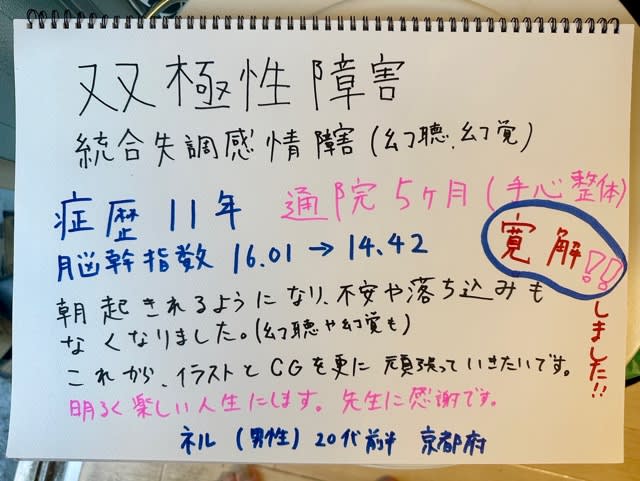 双極性障害
統合失調感情障害(幻聴、幻覚)
症歴 11年 通院5ヶ月(手心整体)
脳幹指数 16.01→14.42
寛解!!しました!!
朝起きれるようになり、不安や落ち込みも
なくなりました。(幻聴や幻覚も)
これから、イラストとCGを更に頑張っていきたいです。
明るく楽しい人生にします。先生に感謝です。
ネル (男性) 20代前半 京都府